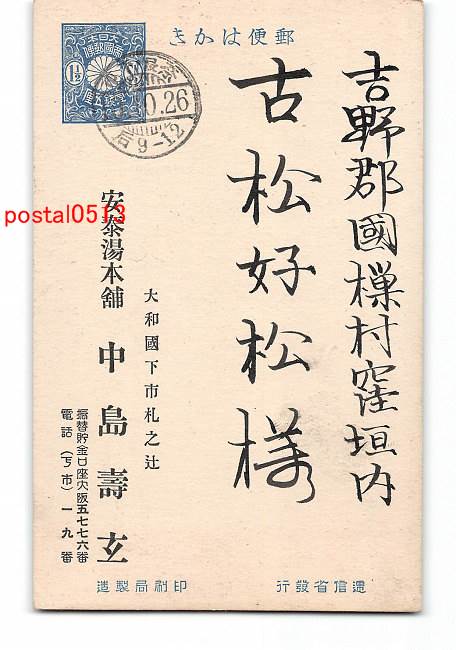 郵便はかき
1½
0.26
9-12
吉野郡國樔村窪垣内
古松好松様
大和國下市札之辻
安泰湯本舗 中島壽玄
振替貯金口座大阪五七七六番
電話(下市)一九番
逓信省發行
印刷局製造
postal0513